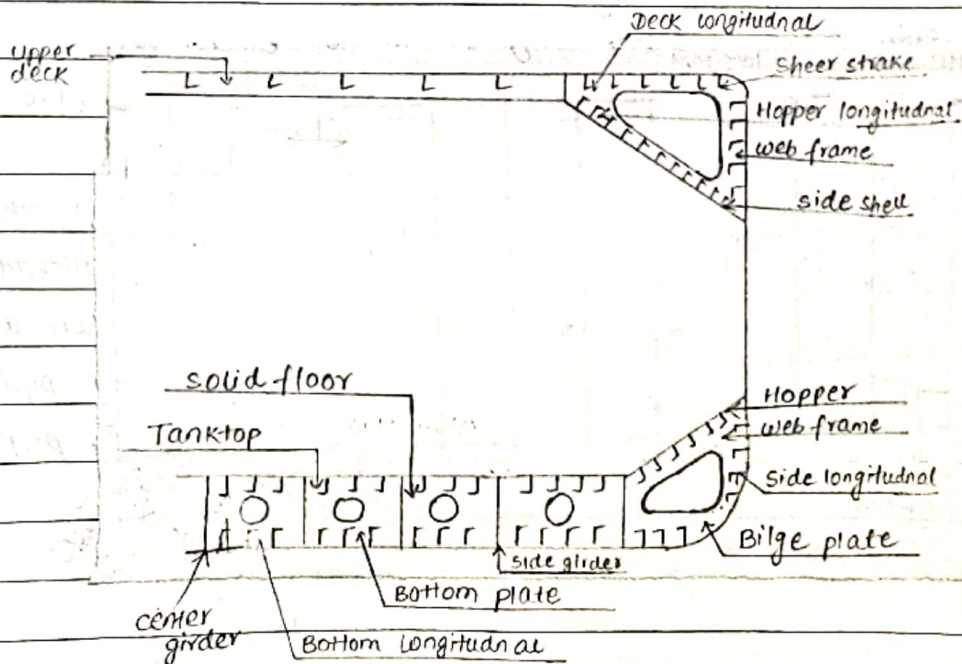 Deck longitudnal
upper
deck
Sheer strake
Hopper longitudnal
web frame
side shell
solid floor
Hopper
web frame
Tanktop
Side longitudnal
Bilge plate
side girder
Bottom plate
center
girder
Bottom longitudnal